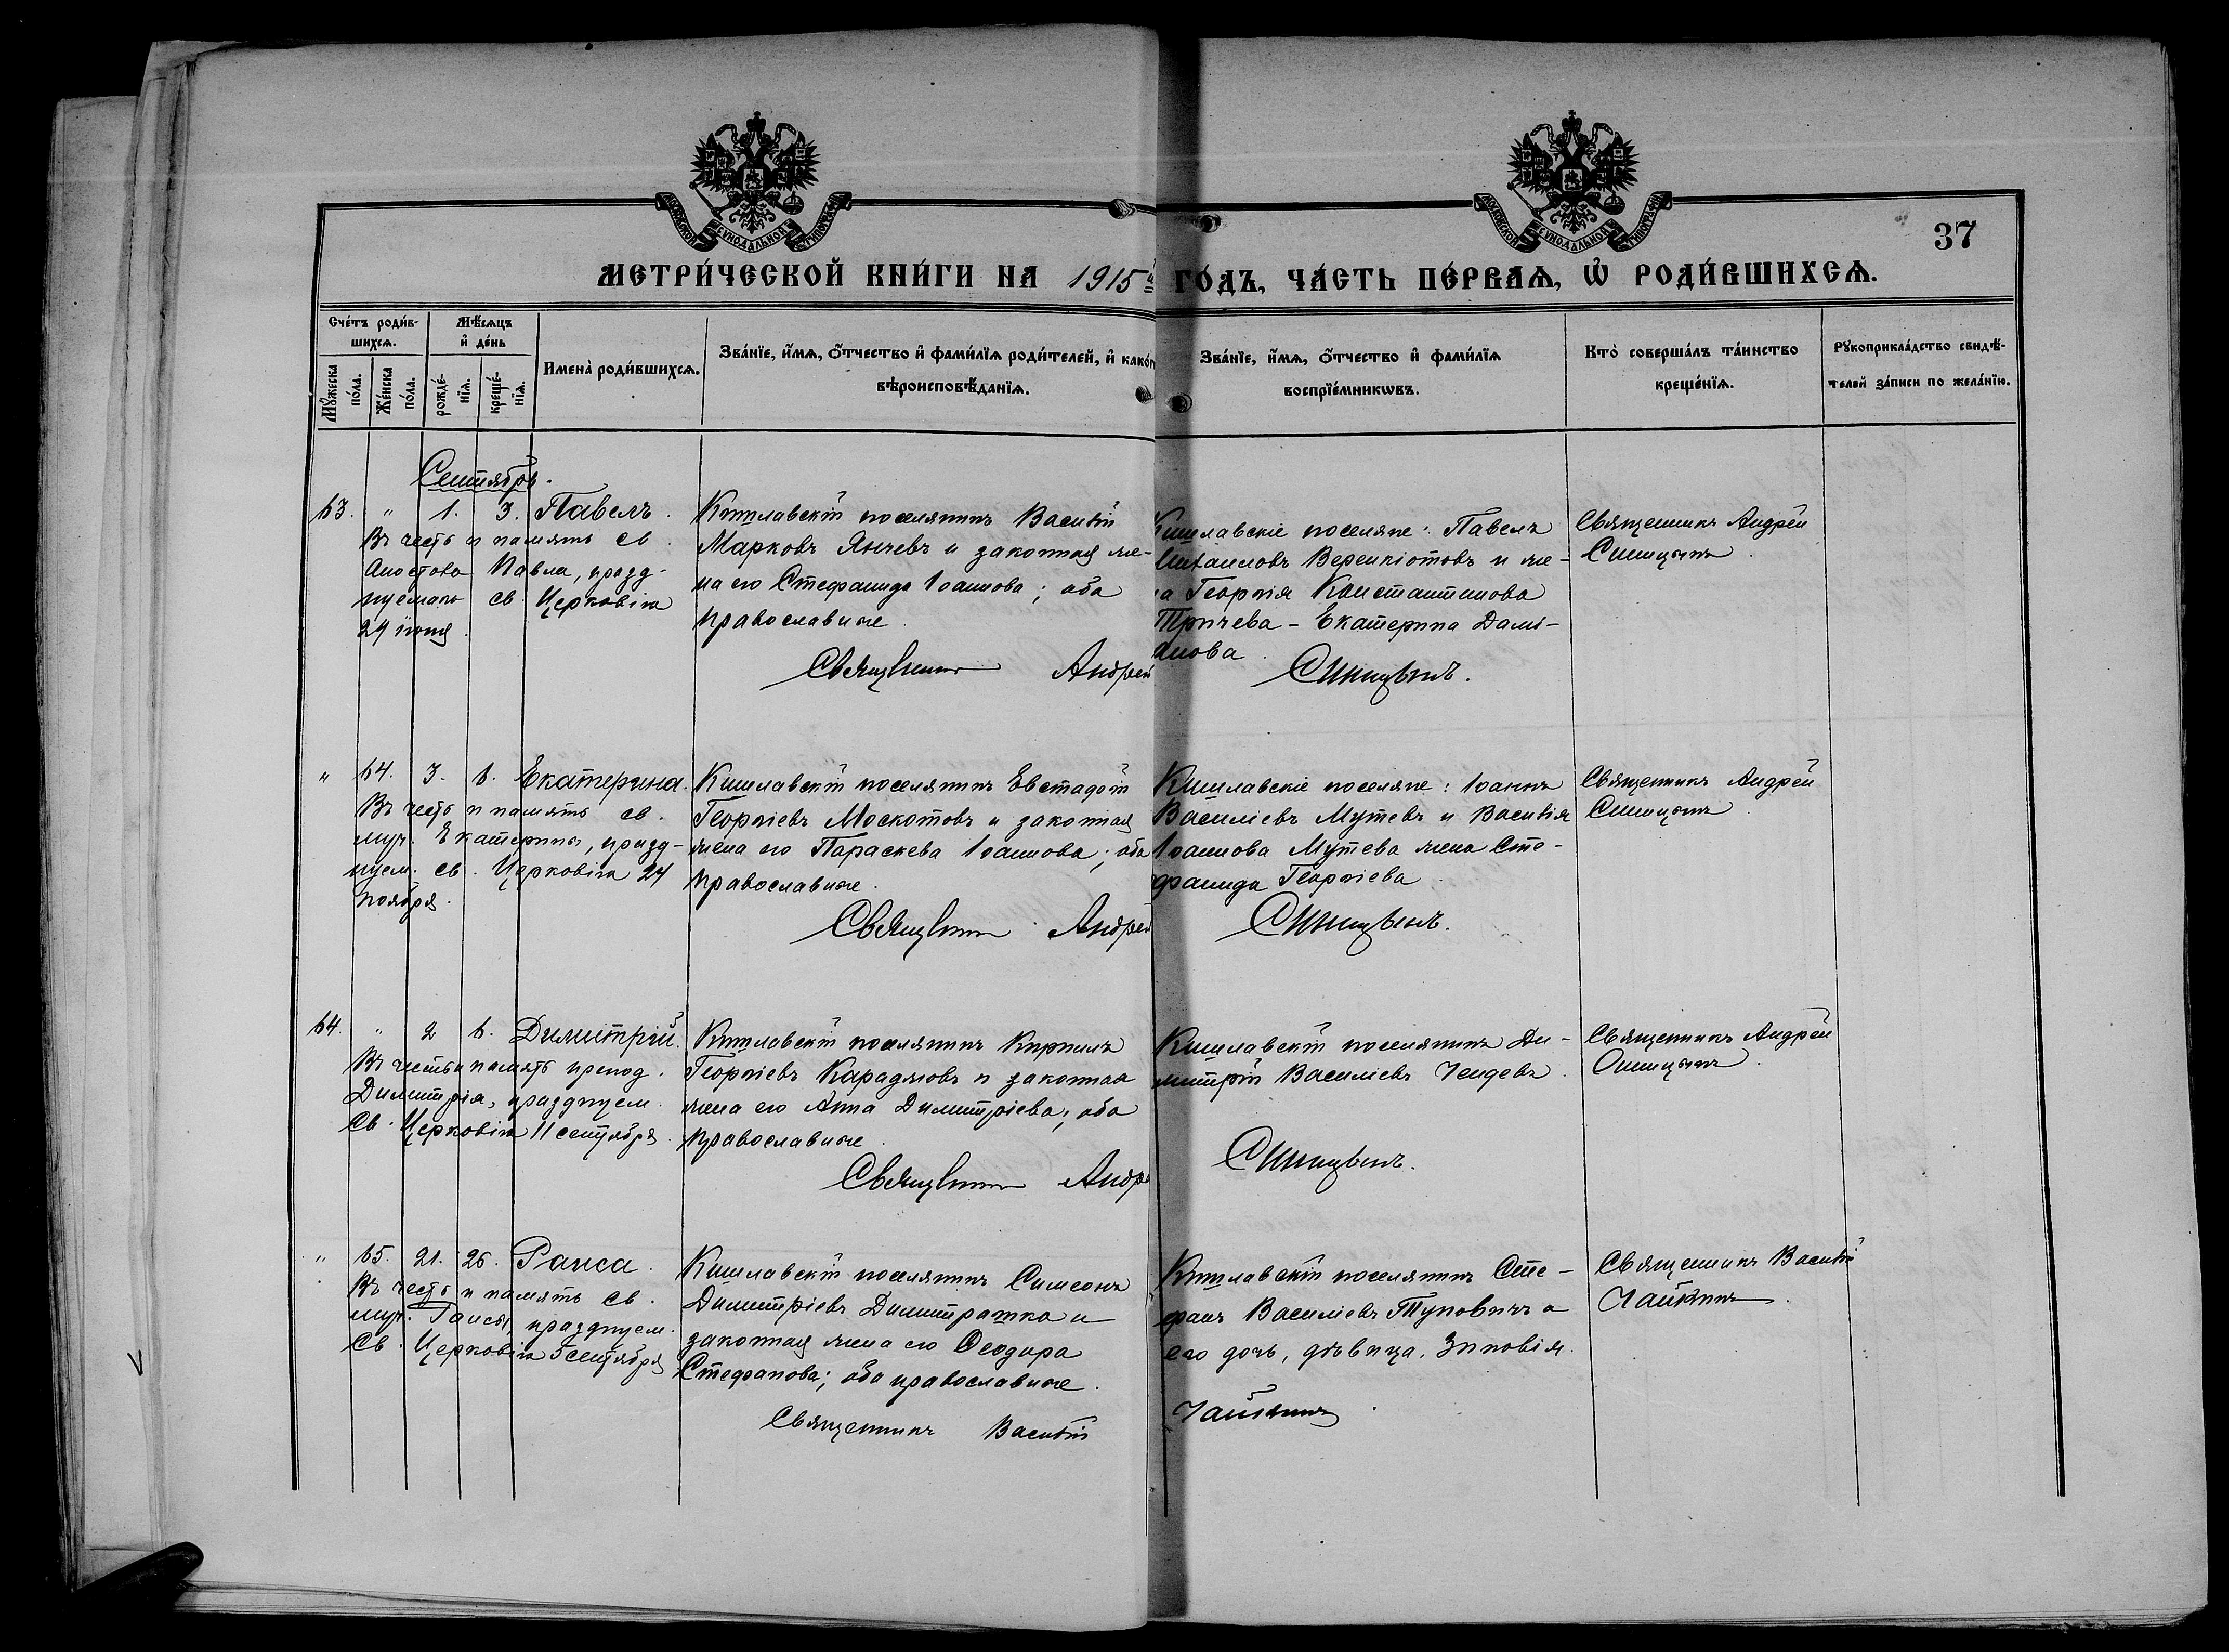 МОСКОВСКОЙ СѴНОДАЛЬНОЙ ТѴПОГРАФІИ
МОСКОВСКОЙ СѴНОДАЛЬНОЙ ТѴПОГРАФІИ
37
МЕТРИ́ЧЕСКОЙ КНИ́ГИ НА 1915й ГО́ДЪ, ЧА́СТЬ ПЕ́РВАѦ, Ѡ҆ РОДИ́ВШИХСѦ.
Сче́тъ роди́в-
шихсѧ.
Мѣ́сѧцъ
и҆ де́нь
Мꙋ́жеска по́ла.
Же́нска по́ла.
рожде́-
нїѧ.
креще́-
нїѧ.
Имена̀ роди́вшихсѧ.
Зва́нїе, и҆́мѧ, ѻ҆́тчество и҆ фами́лїѧ роди́телей, и҆ како́г
вѣроисповѣ́данїѧ.
Зва́нїе, и҆́мѧ, ѻ҆́тчество и҆ фами́лїѧ
воспрїе́мникѡвъ.
Кто̀ соверша́лъ та́инство
креще́нїѧ.
Рꙋкоприкла́дство свидѣ́-
телей за́писи по жела́нїю.
Сентябрь.
63. " 1. 3. Павелъ.
Въ честь и память св.
Апостола Павла, празд-
нуемаго св. Церковію
29 іюня.
Кишлавскій поселянинъ Василій
Марковъ Янчевъ и законная же-
на его Стефанида Іоаннова; оба
православные.
Священникъ Андрей
Кишлавскіе поселяне: Павелъ
Михаиловъ Веренкіотовъ и же-
на Георгія Константинова
Тричева - Екатерина Дамі-
анова.
Синицынъ.
Священникъ Андрей
Синицынъ.
" 64. 3. 6. Екатерина.
Въ честь и память св.
муч. Екатерины, празд-
нуем. св. Церковію 24
ноября.
Кишлавскій поселянинъ Евстафій
Георгіевъ Москотовъ и законная
жена его Параскева Іоаннова; оба
православные.
Священникъ Андрей
Кишлавскіе поселяне: Іоаннъ
Василіевъ Мутевъ и Василія
Іоаннова Мутева жена Сте-
фанида Георгіева.
Синицынъ.
Священникъ Андрей
Синицынъ.
64. " 2 6. Димитрій.
Въ честь и память препод.
Димитрія, празднуем.
св. Церковію 11 сентября.
Кишлавскій поселянинъ Кириллъ
Георгіевъ Караджовъ и законная
жена его Анна Димитріева; оба
православные.
Священникъ Андре
Кишлавскій поселянинъ Ди-
митрій Василіевъ Чендевъ.
Синицынъ.
Священникъ Андрей
Синицынъ.
" 65. 21. 26. Раиса.
Въ честь и память св.
муч. Раисы, празднуем.
св. Церковію 5 сентября
Кишлавскій поселянинъ Симеонъ
Димитріевъ Димитрашко и
законная жена его Ѳеодора
Стефанова; оба православные.
Священникъ Василій
Кишлавскій поселянинъ Сте-
фанъ Василіевъ Туповичъ и
его дочь, дѣвица, Зиновія.
Чайкинъ
Священникъ Василій
Чайкинъ.